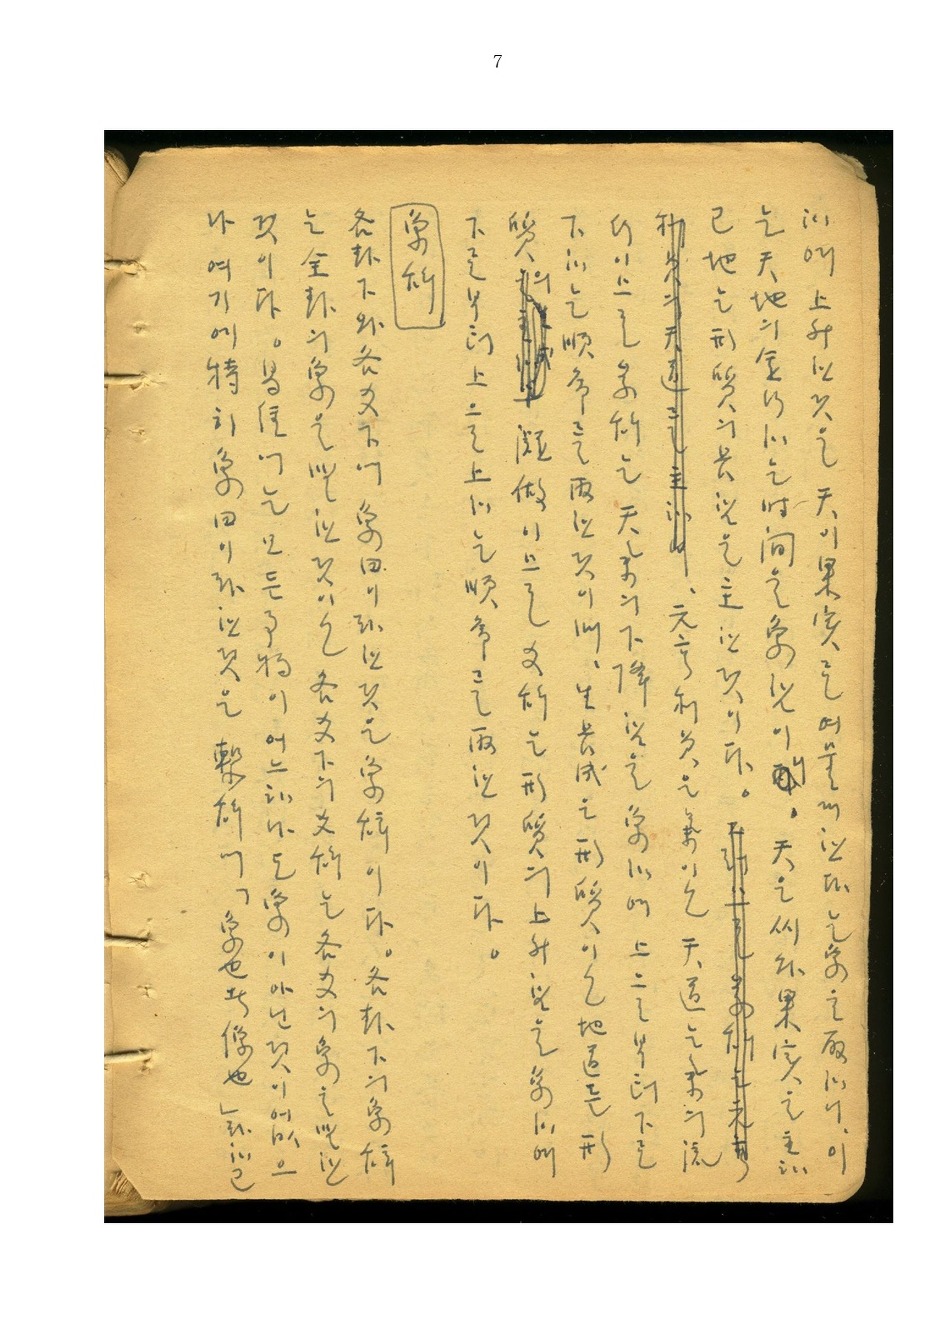 7
하여 上升한것은 天이果實로여물게한다는象을取하니, 이
는天地의 하는時間을象함이 。天은씨와果實을主하
고 地는形質의長함을主한것이다。
、元亨利貞은氣이고 天道는氣의流
行이므로彖辭는 天氣의下降함을象하여 上으로부터下로
下하는順序로取한것이며、生長成은形質이고 地道는形
質의 凝做이므로 爻辭는形質의上升함을象하여
下로부터上으로上하는順序로取한것이다。
象辭
各卦下와各爻下에 象曰이라한것은象辭이다。各卦下의象辭
는全卦의象을說한것이고 各爻下의爻辭는各爻의象을說한
것이다。易 에는모든事物이 어느하나도象이아닌것이없으
나 여기에特히象曰이라한것은 繫辭에「象也者像也」라하고